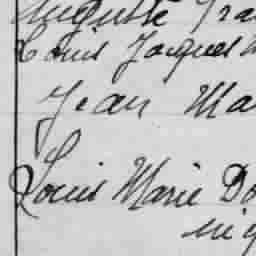 Auguste Fra
Louis Jacques M
Jean Ma
Louis Marie Do
mi